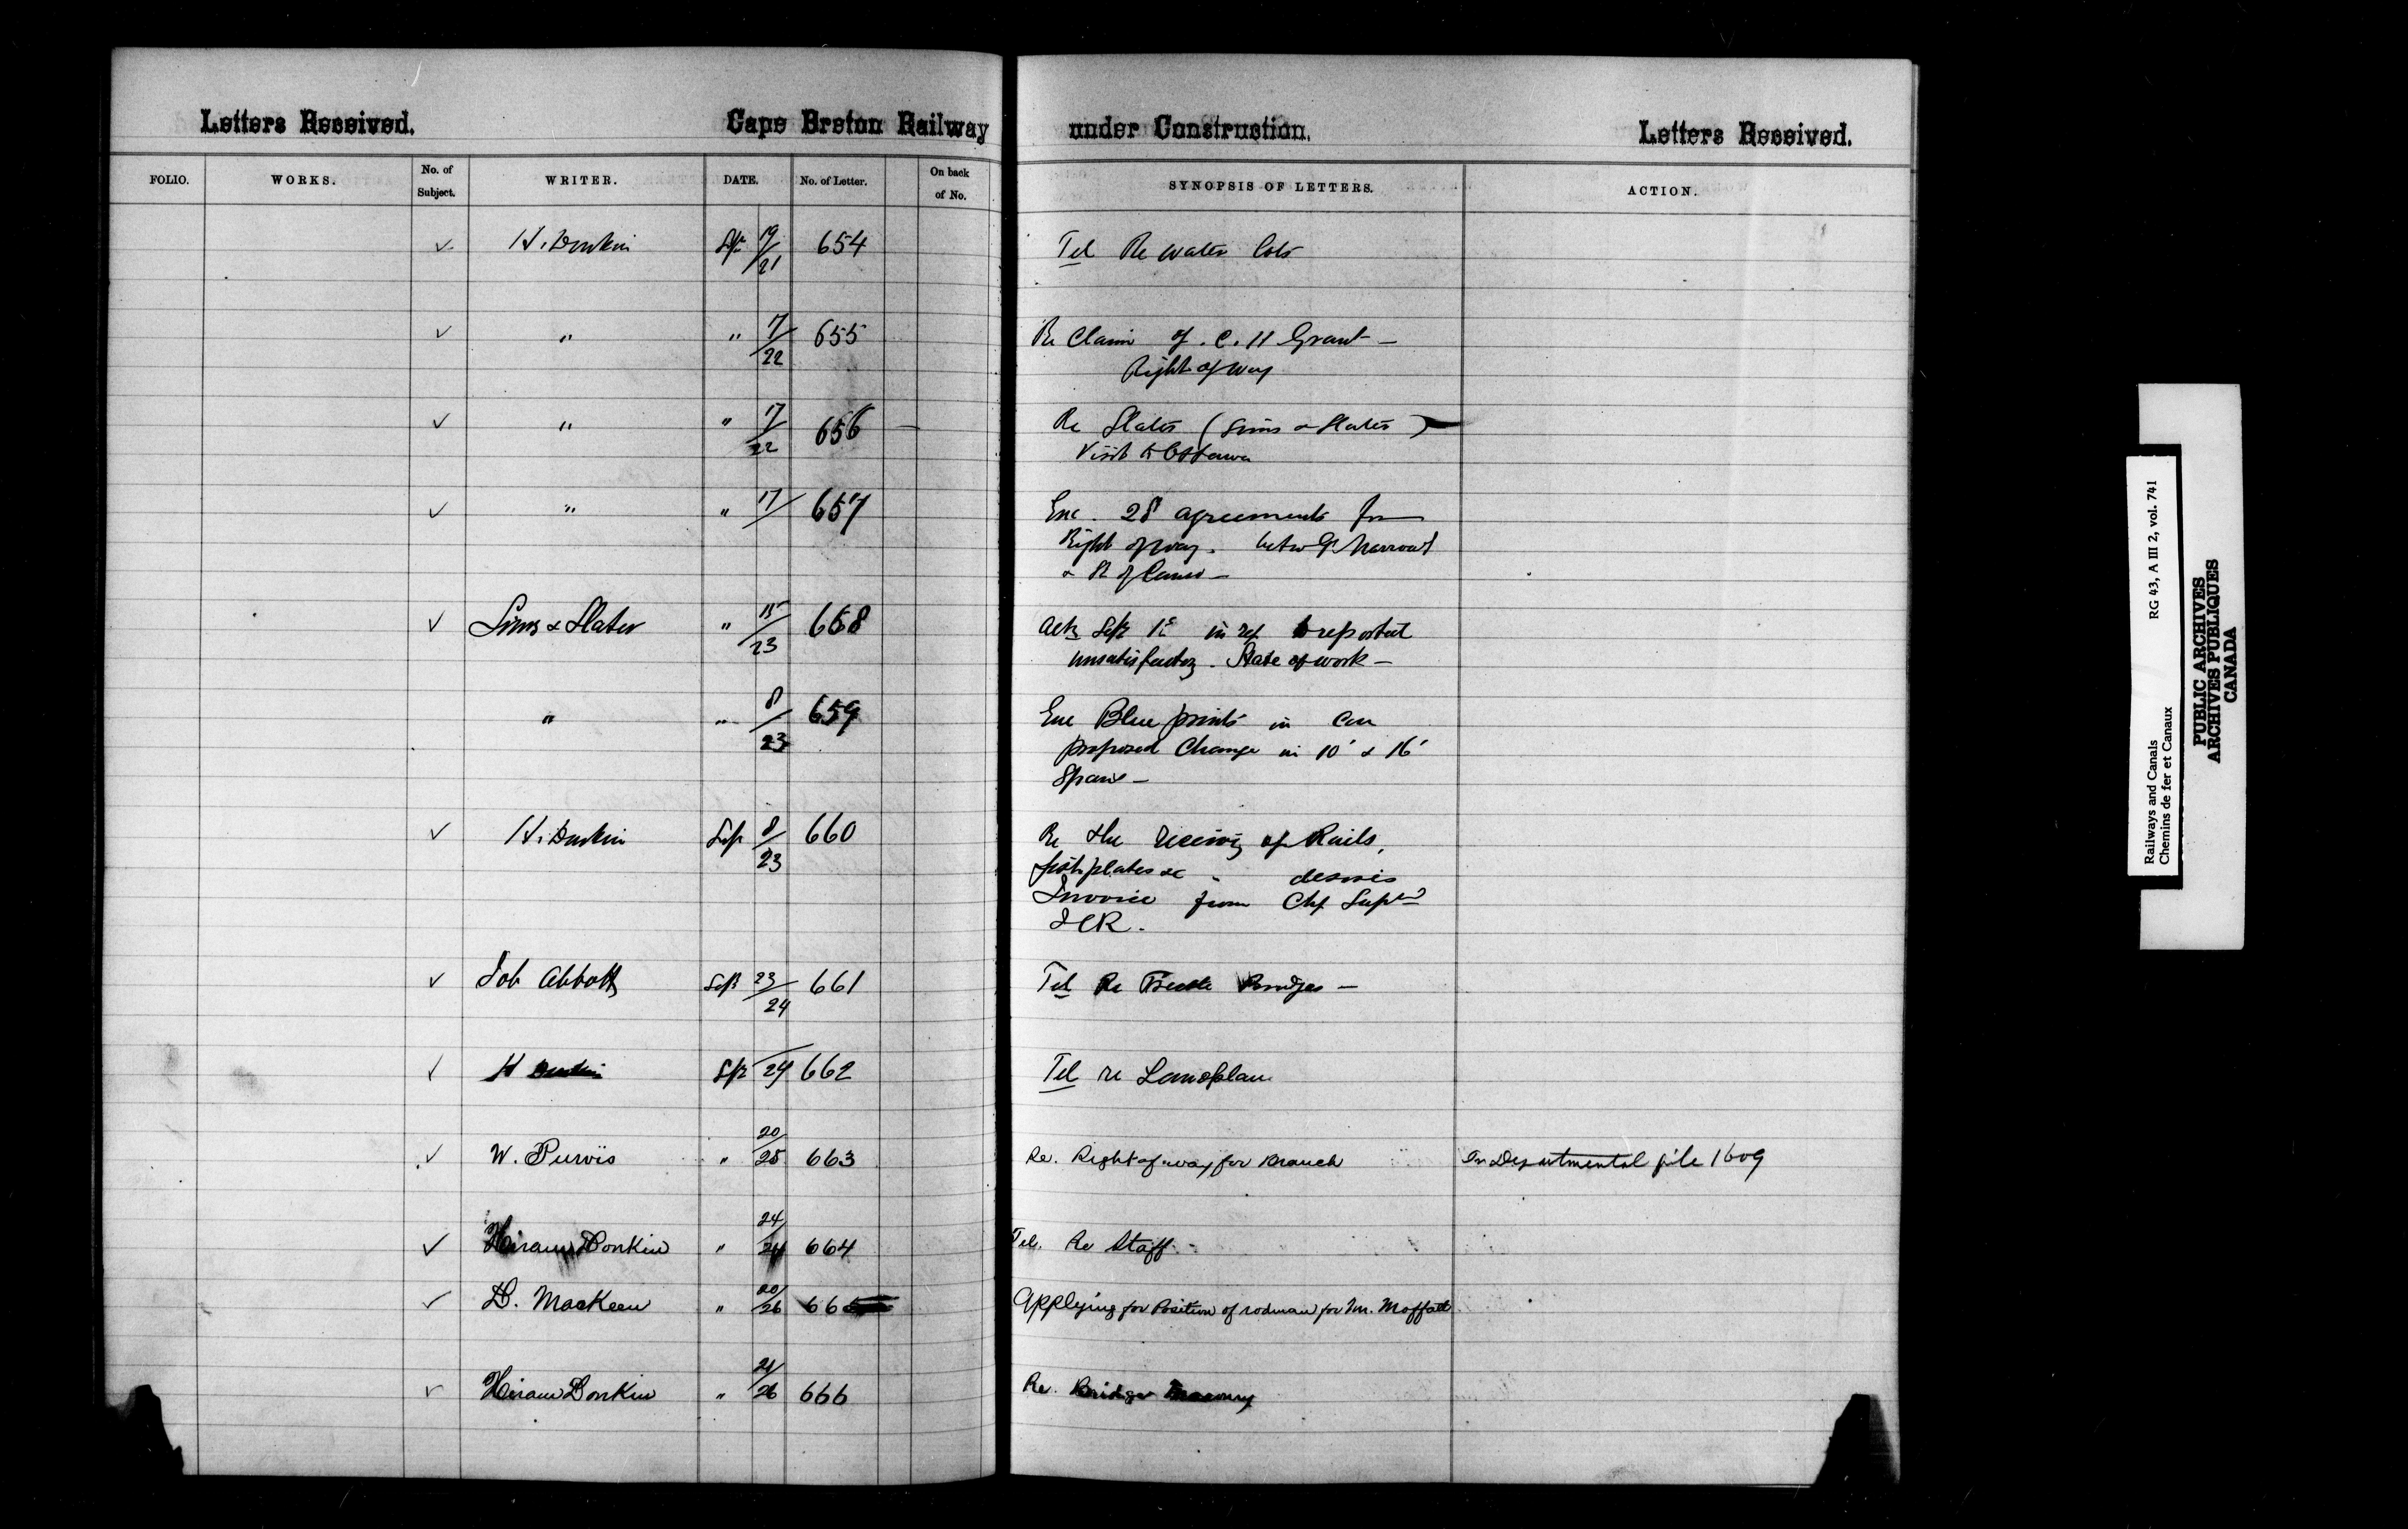 Letters Received. Cape Breton Railway under Construction. Letters Received.
FOLIO. WORKS. No. of Subject. WRITER. DATE. No. of Letter. On back of No. SYNOPSIS OF LETTERS. ACTION.
✓ H. Donkin Sept 19/21 654 Tel Re water lots
✓ " " 17/22 655 Re Claim of C. H Grant —
Right of way
✓ " " 17/22 656 Re Slater (Sims & Slater)
Visit to Ottawa
✓ " " 17/ 657 Enc. 28 agreements for
Right of way. betw Gd Narrows
& St of Canso —
✓ Sims & Slater " 15/23 658 Ack Sept 1st in ref to reported
unsatisfactory State of work —
" " 8/23 659 Enc Blue prints in Con
proposed Change in 10' & 16'
Spans —
✓ H. Donkin Sep 8/23 660 Re the receiving of Rails,
fishplates &c desires
Invoice from Chf Supt
ICR.
✓ Job Abbott Sept 23/24 661 Tel Re Trestle Bridges —
✓ H Donkin Sept 24 662 Tel re
✓ W. Purvis " 20/25 663 Re. Right of way for Branch In Departmental file 1609
✓ Hiram Donkin " 24/24 664 Tel. Re Staff.
✓ D. MacKeen " 20/26 665 Applying for Position of rodman for Mr. Moffatt
✓ Hiram Donkin " 21/26 666 Re. Bridge Masonry
Railways and Canals RG 43, A III 2, vol. 741
Chemins de fer et Canaux
PUBLIC ARCHIVES
ARCHIVES PUBLIQUES
CANADA